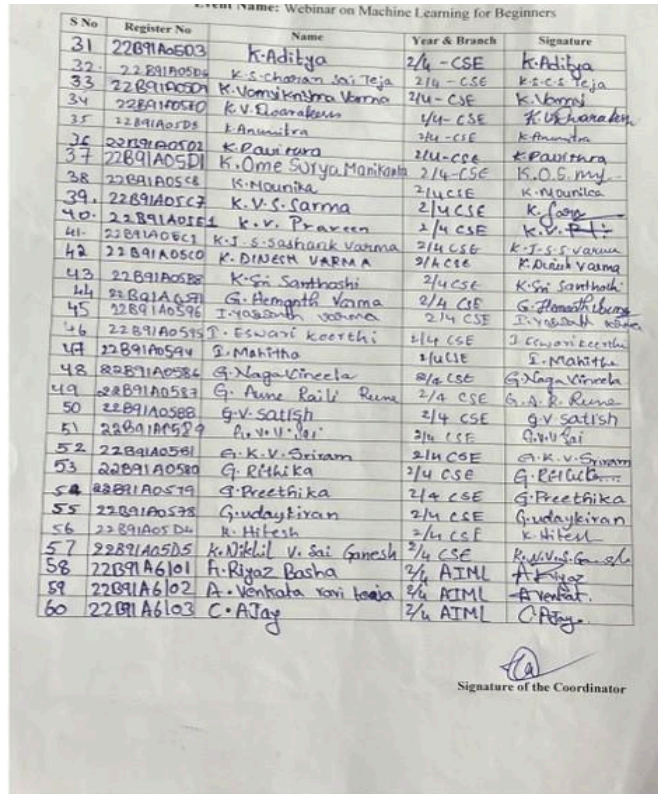 Event Name: Webinar on Machine Learning for Beginners
S No Register No Name Year & Branch Signature
31 22B91A05D3 K.Aditya 2/4 - CSE K.Aditya
32. 22B91A05D6 K.S.Charan Sai Teja 2/4 - CSE K.S.C.S Teja
33 22B91A05D9 K.Vamsi Krishna Varma 2/4 - CSE K.Vamsi
34 22B91A05E0 K.V. 2/4 - CSE
35 22B91A05D8 K.Anumitra 2/4 - CSE K.Anumitra
36 22B91A05D2 K.Pavithra 2/4 - CSE K.Pavithra
37 22B91A05D1 K.Ome Surya Manikanta 2/4 - CSE K.O.S.my
38 22B91A05C8 K.Mounika 2/4 CSE K.Mounika
39. 22B91A05C7 K.V.S.Sarma 2/4 CSE K.
40. 22B91A05E1 K.V. Praveen 2/4 CSE K.V.
41. 22B91A05C1 K.J.S.Sashank Varma 2/4 CSE K.J.S.S Varma
42 22B91A05C0 K.DINESH VARMA 2/4 CSE K.Dinesh Varma
43 22B91A05B8 K.Sri Santhoshi 2/4 CSE K.Sri Santhoshi
44 G.Hemanth Varma 2/4 CSE G.
45 22B91A0596 I.Yaswanth Varma 2/4 CSE I.Yaswanth Varma
46 22B91A0595 I.Eswari Keerthi 2/4 CSE I Eswari Keerthi
47 22B91A0594 I.Mahitha 2/4 CSE I.Mahitha
48 22B91A0586 G.Naga Vineela 2/4 CSE G.Naga Vineela
49 22B91A0587 G. Rune 2/4 CSE G.A.R.Rune
50 22B91A0588 G.V.Satish 2/4 CSE G.V Satish
51 22B91A0589 G.V.V.Sai 2/4 CSE G.V.V Sai
52 22B91A0581 G.K.V.Sriram 2/4 CSE G.K.V.Sriram
53 22B91A0580 G.Rithika 2/4 CSE G.
54 22B91A0579 G.Preethika 2/4 CSE G.Preethika
55 22B91A0578 G.udaykiran 2/4 CSE G.udaykiran
56 22B91A05D4 K.Hitesh 2/4 CSE K.Hitesh
57 22B91A05D5 K.Nikhil V. Sai Ganesh 2/4 CSE
58 22B91A6101 A.Riyaz Basha 2/4 AIML A.Riyaz
59 22B91A6102 A.Venkata ravi teja 2/4 AIML A Venkat.
60 22B91A6103 C.AJay 2/4 AIML C.AJay.
Signature of the Coordinator